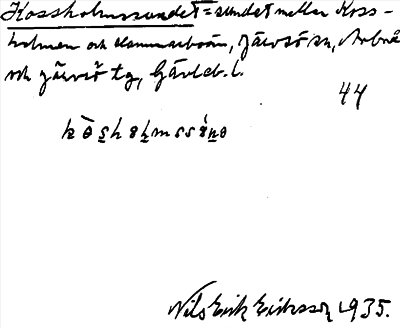 Kossholmssundet = sundet mellan Koss-
holmen och Hammarboön, Järvsö sn, Arbrå
och järvsö tg, Gävleb. l.
44
Nils Erik Eriksson 1935.